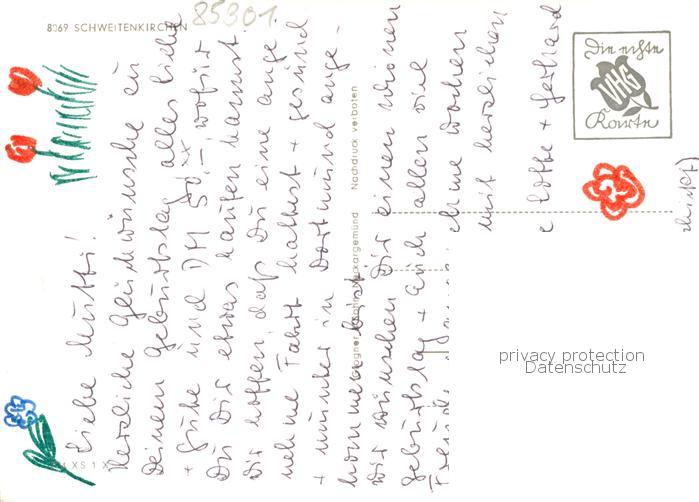 8069 SCHWEITENKIRCHEN
85301
Liebe Mutti!
Herzliche Glückwünsche zu
Deinem Geburtstag alles Liebe
+ Gute und DM 50.-, wofür
Du Dir etwas kaufen kannst.
Wir hoffen, daß Du eine ange
nehme Fahrt hattest + gesund
+ munter in Dortmund ange-
kommen bist.
Wir wünschen Dir einen schönen
Geburtstag + Euch allen viel
Freude
Wochen
mit herzlichen
Lotte + Gerhard
Gebr. Metz Nachdruck verboten
Die echte
VHG
Karte
privacy protection
Datenschutz